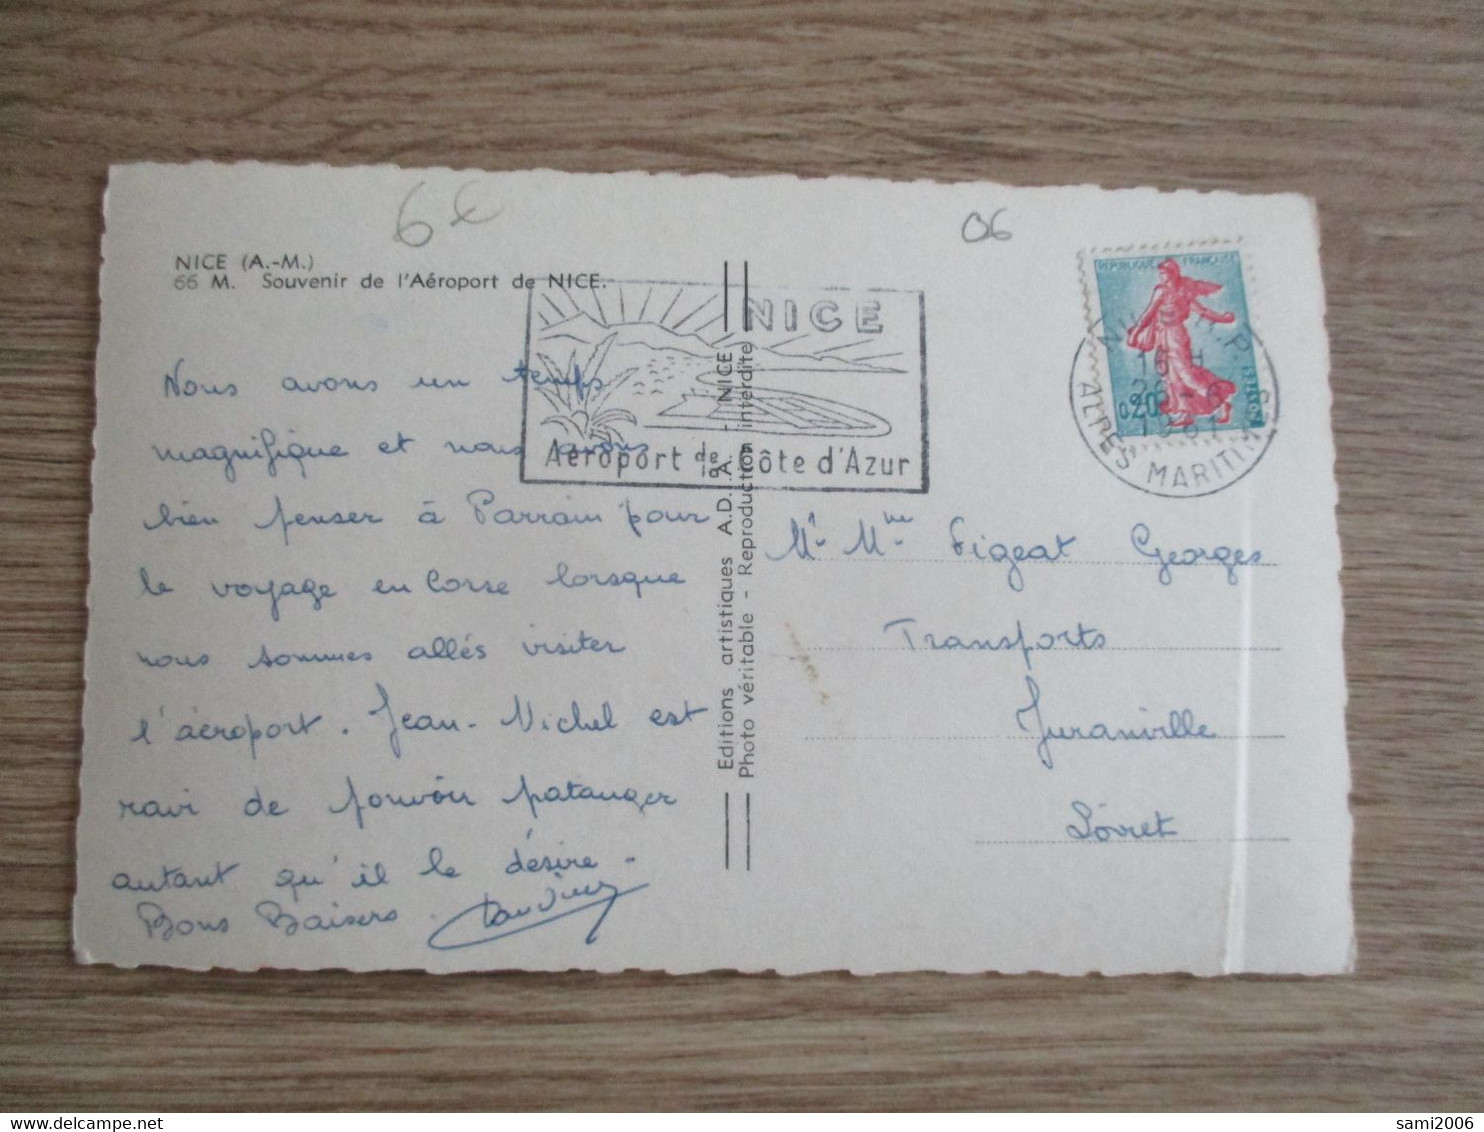 6€
06
NICE (A.-M.)
66 M. Souvenir de l'Aéroport de NICE.
Nous avons un temps
magnifique et nous avons
bien penser à Parrain pour
le voyage en Corse lorsque
nous sommes allés visiter
l'aéroport. Jean-Michel est
ravi de pouvoir patauger
autant qu'il le désire.
Bons Baisers.
NICE
Aéroport de la Côte d'Azur
Editions artistiques A.D.A. - NICE
Photo véritable - Reproduction interdite
REPUBLIQUE FRANÇAISE
0,20
POSTES
NICE R.P.
16 H
26 - 6
1961
ALPES MARITIMES
Mr Mme Figeat Georges
Transports
Juranville
Loiret
sami2006